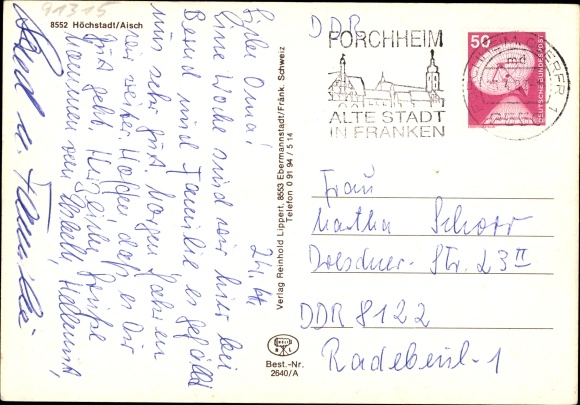 91315
8552 Höchstadt/Aisch
24.4.
Liebe Oma!
Eine Woche sind wir hier bei
Bernd und Familie es gefällt
uns sehr gut. Morgen fahren
wir weiter. Hoffen daß es Dir
gut geht. Herzliche Grüße
kommen von Hellmut,
Bernd u. Familie
Verlag Reinhold Lippert, 8553 Ebermannstadt/Fränk. Schweiz
Telefon 0 91 94 / 5 14
Best.-Nr.
2640/A
DDR
FORCHHEIM
ALTE STADT
IN FRANKEN
50
DEUTSCHE BUNDESPOST
FORCHHEIM, OBERFR 1
md
Frau
Martha Schorr
Dresdner-Str. 23 II
DDR 8122
Radebeul-1